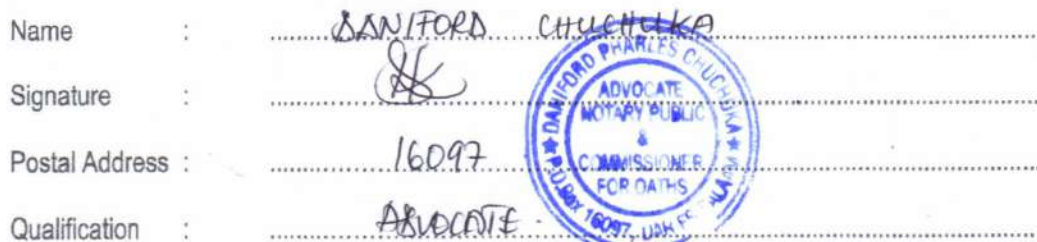 Name : DANIFORD CHUCHUKA
Signature :
Postal Address : 16097
Qualification : ADVOCATE.
DANIFORD PHARLES CHUCHUKA
ADVOCATE
NOTARY PUBLIC
&
COMMISSIONER
FOR OATHS
P.O.Box 16097, DAR ES SALAAM